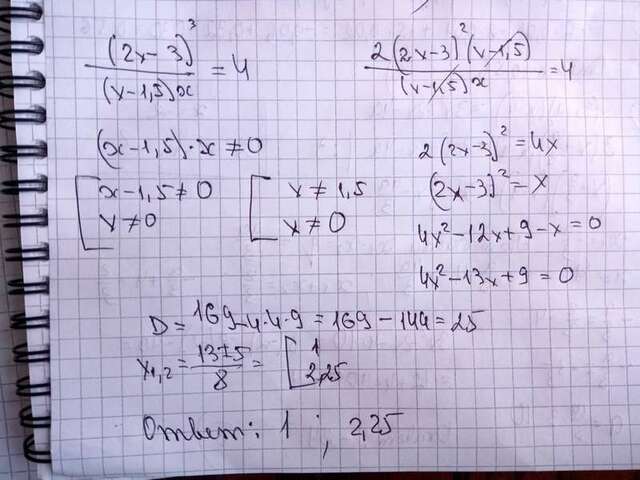 (2x-3)³/(x-1,5)x = 4
(x-1,5)·x≠0
[x-1,5≠0 [x≠1,5
x≠0 x≠0
2(2x-3)²(x-1,5)/(x-1,5)x = 4
2(2x-3)²=4x
(2x-3)²=x
4x²-12x+9-x=0
4x²-13x+9=0
D=169-4·4·9=169-144=25
x₁,₂ = 13±5/8 = [1
2,25
Ответ: 1; 2,25